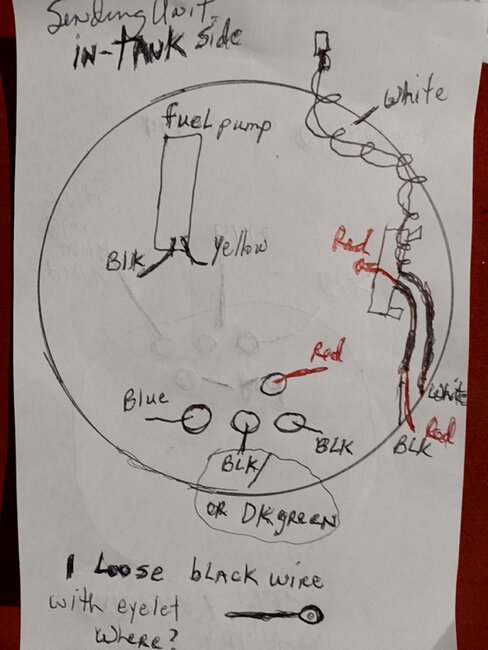 Sending Unit
in-TANK side
White
fuel pump
Red
BlK
yellow
Red
Blue
White
Red
BLK
BLK
BLK/
OR DKgreen
1 Loose bLACK wire
with eyelet
where?